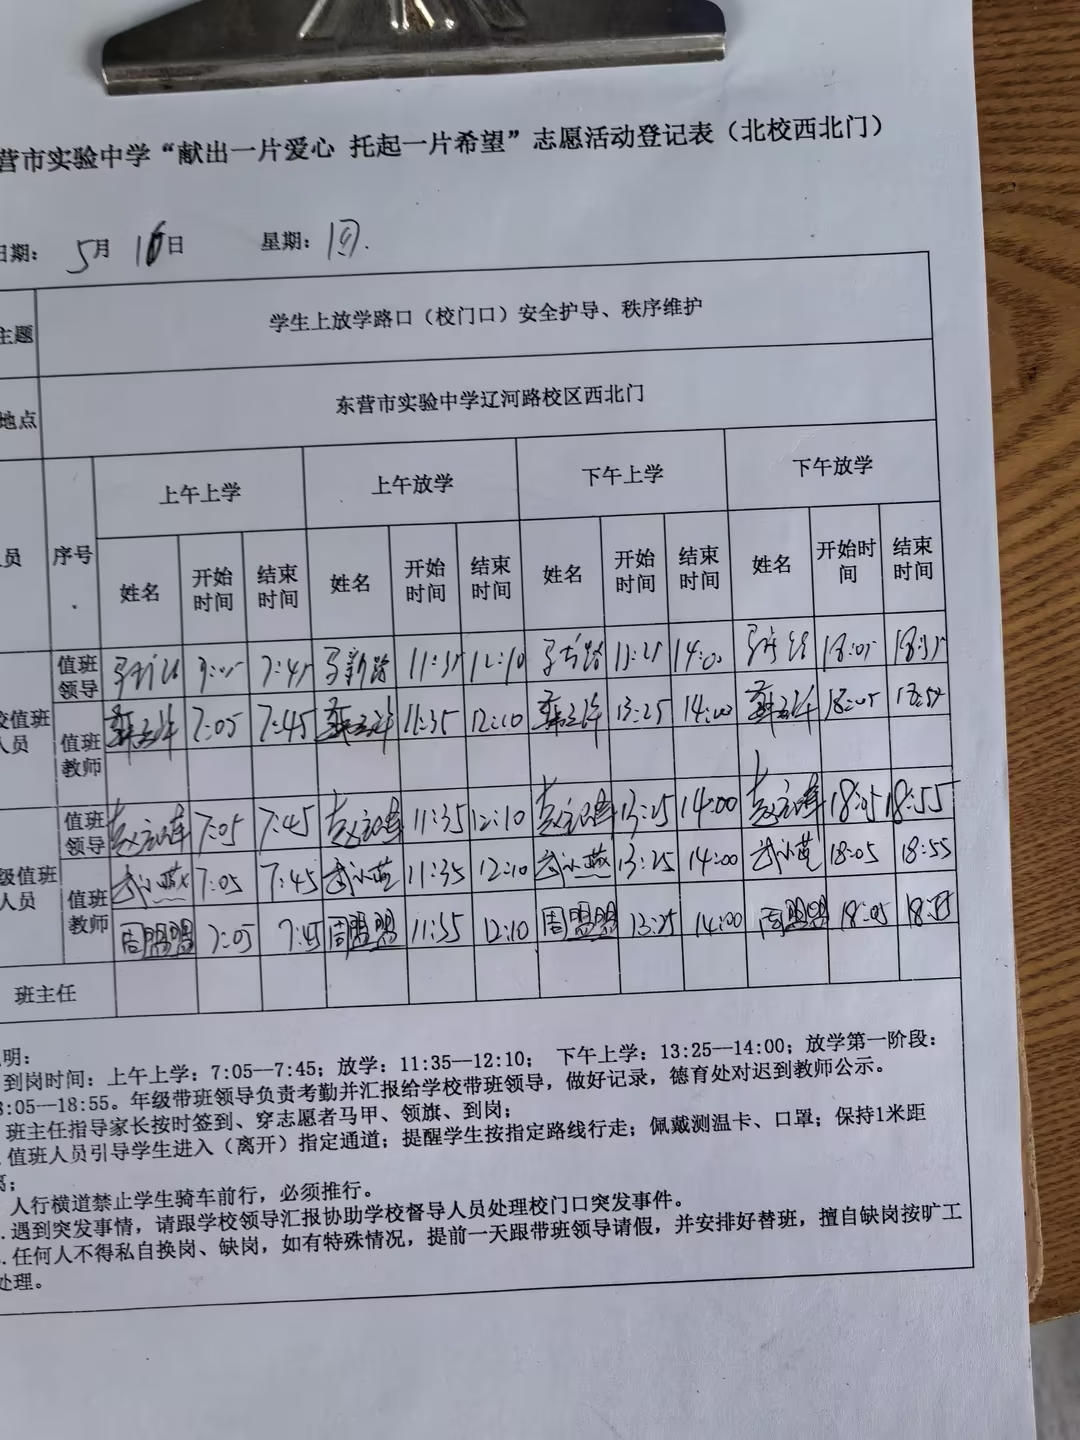 营市实验中学“献出一片爱心 托起一片希望”志愿活动登记表（北校西北门）
日期： 5月 16日 星期：四.
主题 学生上放学路口（校门口）安全护导、秩序维护
地点 东营市实验中学辽河路校区西北门
员 序号 上午上学 上午放学 下午上学 下午放学
姓名 开始时间 结束时间 姓名 开始时间 结束时间 姓名 开始时间 结束时间 姓名 开始时间 结束时间
值班领导 7:45 11:35 12:10 14:00 18:05
校值班人员 值班教师 7:05 7:45 11:35 12:10 13:25 14:00 18:05
值班领导 7:05 7:45 11:35 12:10 13:25 14:00 18:05 18:55
级值班人员 值班教师 武小燕 7:05 7:45 武小燕 11:35 12:10 武小燕 13:25 14:00 武小燕 18:05 18:55
周盟盟 7:05 7:45 周盟盟 11:35 12:10 周盟盟 13:25 14:00 周盟盟 18:05 18:55
班主任
明：
到岗时间：上午上学：7:05--7:45；放学：11:35--12:10； 下午上学：13:25--14:00；放学第一阶段：
8:05--18:55。年级带班领导负责考勤并汇报给学校带班领导，做好记录，德育处对迟到教师公示。
班主任指导家长按时签到、穿志愿者马甲、领旗、到岗；
值班人员引导学生进入（离开）指定通道；提醒学生按指定路线行走；佩戴测温卡、口罩；保持1米距
离；
人行横道禁止学生骑车前行，必须推行。
.遇到突发事情，请跟学校领导汇报协助学校督导人员处理校门口突发事件。
.任何人不得私自换岗、缺岗，如有特殊情况，提前一天跟带班领导请假，并安排好替班，擅自缺岗按旷工
处理。